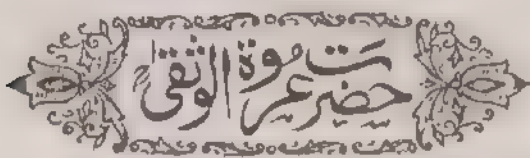 حضرت عروۃ الوثقیٰ